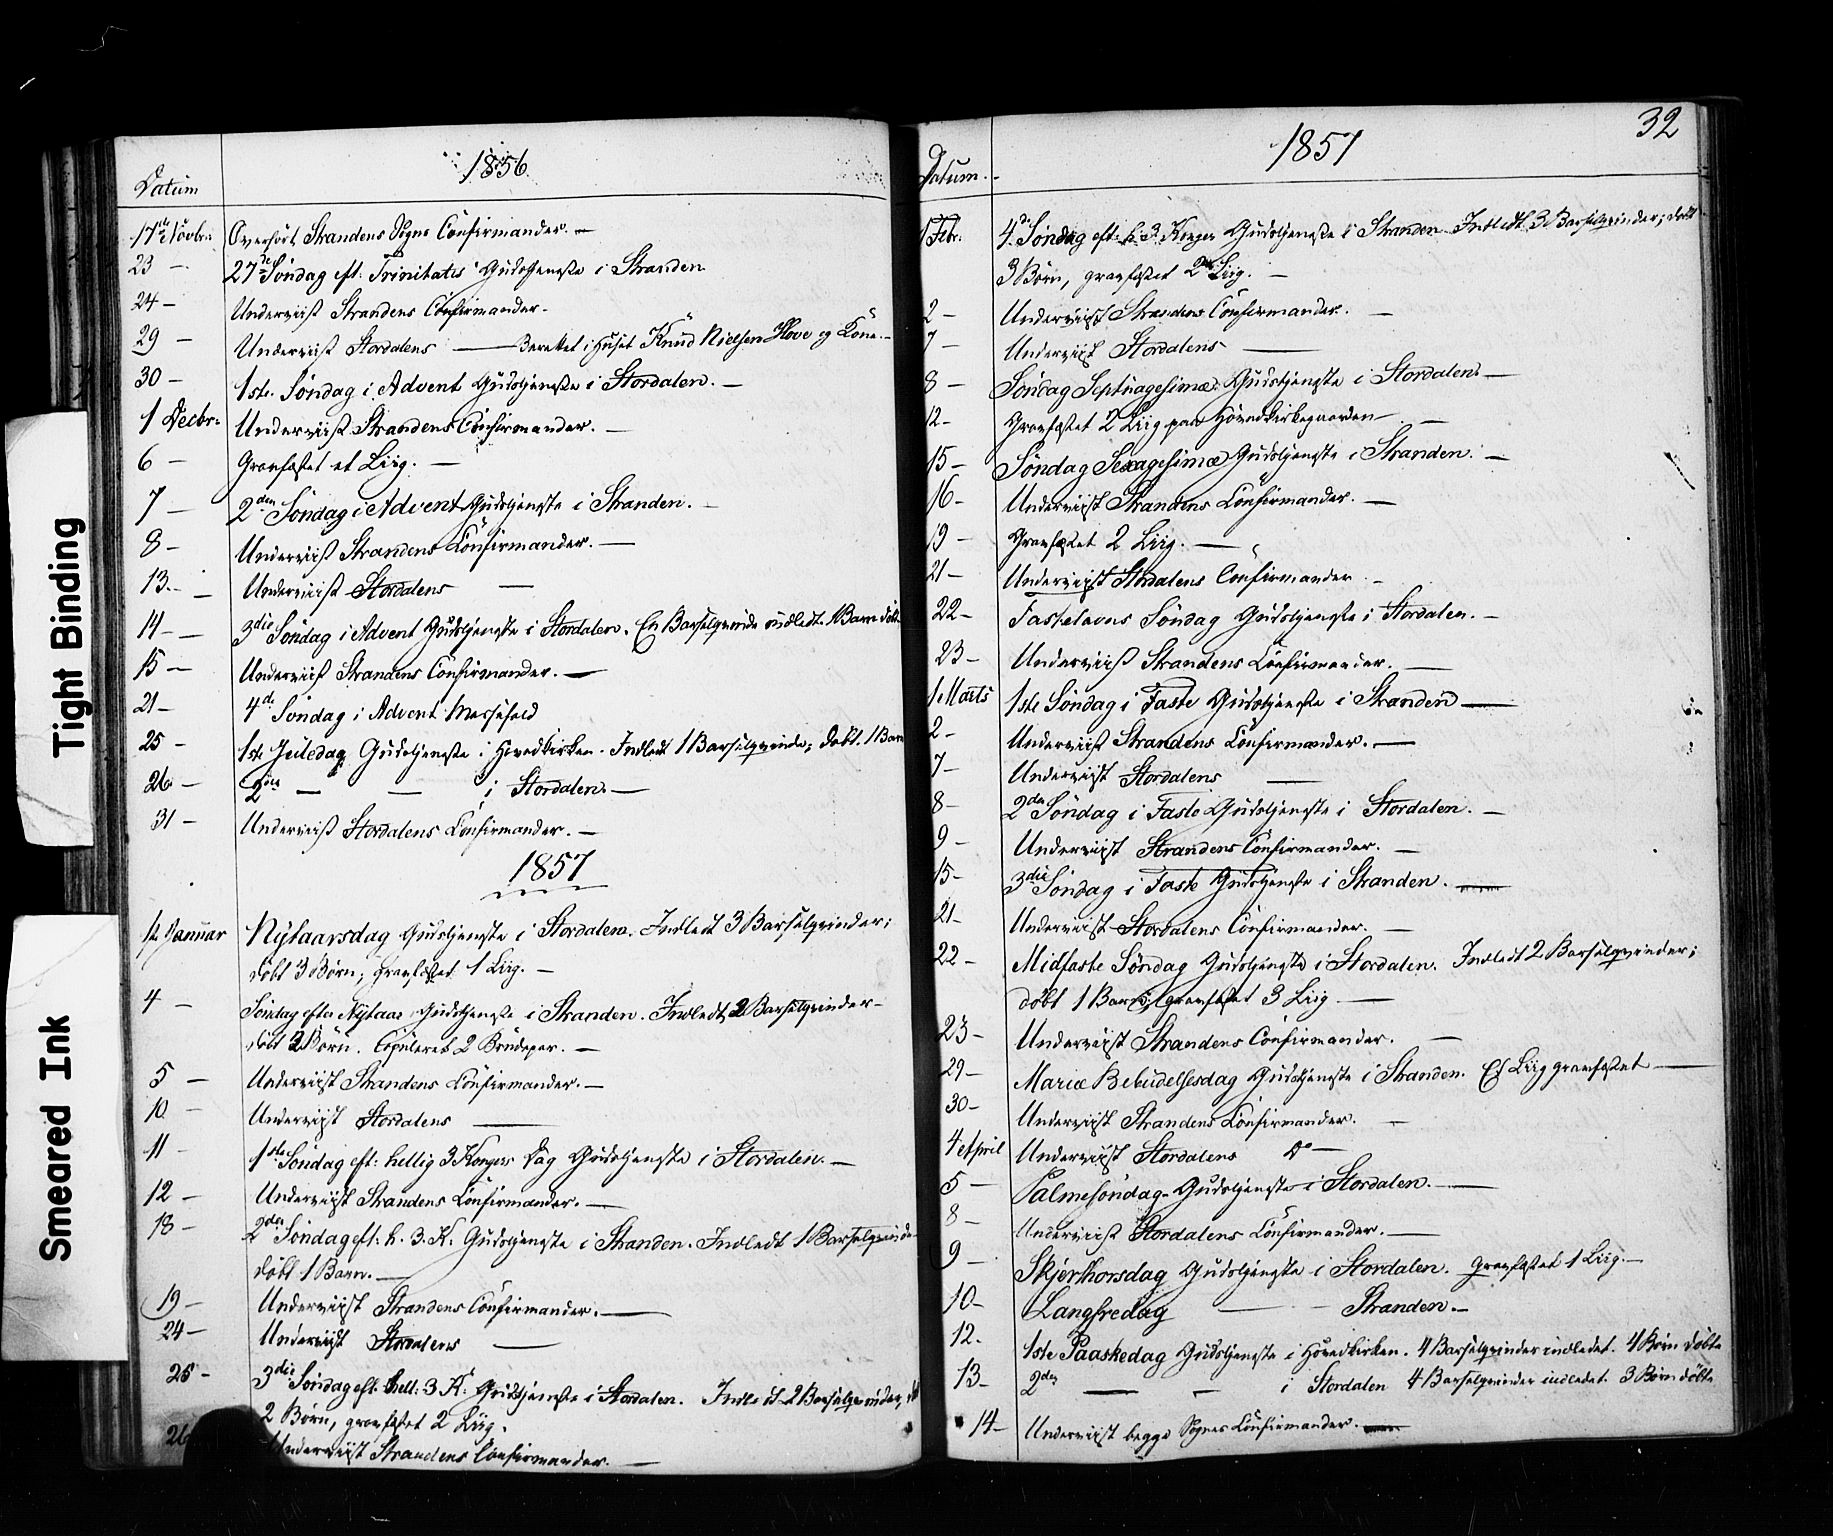 1856.
Datum
17de Novbr: Overhört Strandens Sogns Confirmander. —
23 — 27de Søndag eft: Trinitatis Gudstjeneste i Stranden
24 — Underviist Strandens Confirmander.
29 — Underviist Stordalens — Berettet i Huset Knud Nielsen Hove og Kone. —
30 — 1ste Søndag i Advent Gudstjeneste i Stordalen. —
1 Decbr: Underviist Strandens Confirmander. —
6 — Gravfæstet et Liig. —
7 — 2den Søndag i Advent Gudstjeneste i Stranden. —
8 — Underviist Strandens Confirmander. —
13. — Underviist Stordalens —
14 — 3die Søndag i Advent Gudstjeneste i Stordalen. En Barselqvinde indledt. 1 Barn döbt.
15 — Underviist Strandens Confirmander. —
21 — 4de Søndag i Advent Messefald
25 — 1ste Juledag Gudstjeneste i Hovedkirken. Indledt 1 Barselqvinde; døbt 1 Barn
26 — 2den — — i Stordalen. —
31 — Underviist Stordalens Confirmander. —
1857
1ste Januar Nytaarsdag Gudstjeneste i Stordalen. Indledt 3 Barselqvinder;
döbt 3 Börn; gravfæstet 1 Liig. —
4 — Søndag efter Nytaar Gudstjeneste i Stranden. Indledt 2 Barselqvinder —
döbt 2 Börn. Copuleret 2 Brudepar. —
5 — Underviist Strandens Confirmander. —
10 — Underviist Stordalens —
11 — 1ste Søndag eft: hellig 3 Kongers Dag Gudstjeneste i Stordalen. —
12 — Underviist Strandens Confirmander. —
18 — 2den Søndag eft: h. 3. K. Gudstjeneste i Stranden. Indledt 1 Barselqvinde
döbt 1 Barn. —
19 — Underviist Strandens Confirmander. —
24 — Underviist Stordalens —
25 — 3die Søndag eft: hell: 3 K. Gudstjeneste i Stordalen. Indledt 2 Barselqvinder,
2 Börn, gravfæstet 2 Liig.
26 Underviist Strandens Confirmander. —
32
1857
Datum. —
1 Febr: 4de Søndag eft: h. 3 Konger Gudstjeneste i Stranden. Indledt 3 Barselqvinder; döbt
3 Börn, gravfæstet 2 Liig. —
2 — Underviist Strandens Confirmander. —
7 — Underviist Stordalens —
8 — Søndag Septuagesimæ Gudstjeneste i Stordalen. —
12 — Gravfæstet 2 Liig paa Hovedkirkegaarden —
15 — Søndag Sexagesimæ Gudstjeneste i Stranden. —
16 — Underviist Strandens Confirmander. —
19 — Gravfæstet 2 Liig. —
21 — Underviist Stordalens Confirmander. —
22 — Fastelavns Søndag Gudstjeneste i Stordalen. —
23 — Underviist Strandens Confirmander. —
1 Marts 1ste Søndag i Faste Gudstjeneste i Stranden —
2 — Underviist Strandens Confirmander. —
7 — Underviist Stordalens —
8 — 2den Søndag i Faste Gudstjeneste i Stordalen. —
9 — Underviist Strandens Confirmander. —
15 — 3die Søndag i Faste Gudstjeneste i Stranden. —
21 — Underviist Stordalens Confirmander. —
22 — Midfaste Søndag Gudstjeneste i Stordalen. Indledt 2 Barselqvinder;
döbt 1 Barn; gravfæstet 3 Liig —
23 — Underviist Strandens Confirmander. —
29 — Mariæ Bebudelsesdag Gudstjeneste i Stranden. Et Liig gravfæstet —
30 — Underviist Strandens Confirmander. —
4 April Underviist Stordalens Do —
5 — Palmesøndag Gudstjeneste i Stordalen. —
8 — Underviist Stordalens Confirmander. —
9 — Skjerthorsdag Gudstjeneste i Stordalen. Gravfæstet 1 Liig. —
10 — Langfredag — — Stranden. —
12. 1ste Paaskedag Gudstjeneste i Hovedkirken. 4 Barselqvinder indledet. 4 Börn döbte
13 — 2den — — i Stordalen 4 Barselqvinder indledet. 3 Börn döbte
14 — Underviist begge Sognes Confirmander. —
Tight Binding
Smeared Ink